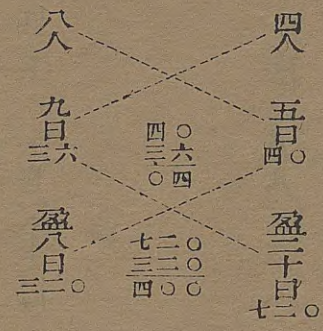 四人
五日
四〇
盈二十日
七二〇
四〇
三六
〇四
七二〇
三二〇
四〇〇
八人
九日
三六
盈八日
三二〇